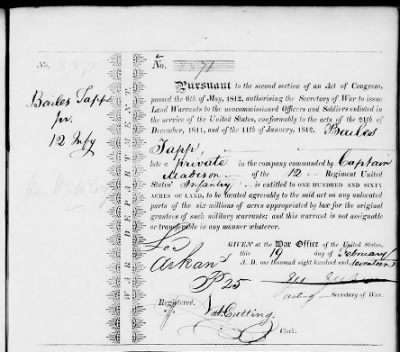 No.
Bailes Tapp
pr.
12 Infy
WAR DEPARTMENT.
No.
Pursuant to the second section of an Act of Congress,
passed the 6th of May, 1812, authorising the Secretary of War to issue
Land Warrants to the noncommissioned Officers and Soldiers enlisted in
the service of the United States, conformably to the acts of the 24th of
December, 1811, and of the 11th of January, 1812, Bailes
Tapp,
late a private in the company commanded by Captain
Madison of the 12 Regiment United
States' Infantry is entitled to ONE HUNDRED AND SIXTY
ACRES OF LAND, to be located agreeably to the said act on any unlocated
parts of the six millions of acres appropriated by law for the original
grantees of such military warrants; and this warrant is not assignable
or transferable in any manner whatever.
GIVEN at the War Office of the United States,
this 19 day of February
A. D. one thousand eight hundred and seventeen
Arkans
acting Secretary of War.
Registered.
Nat. Cutting
Clerk.